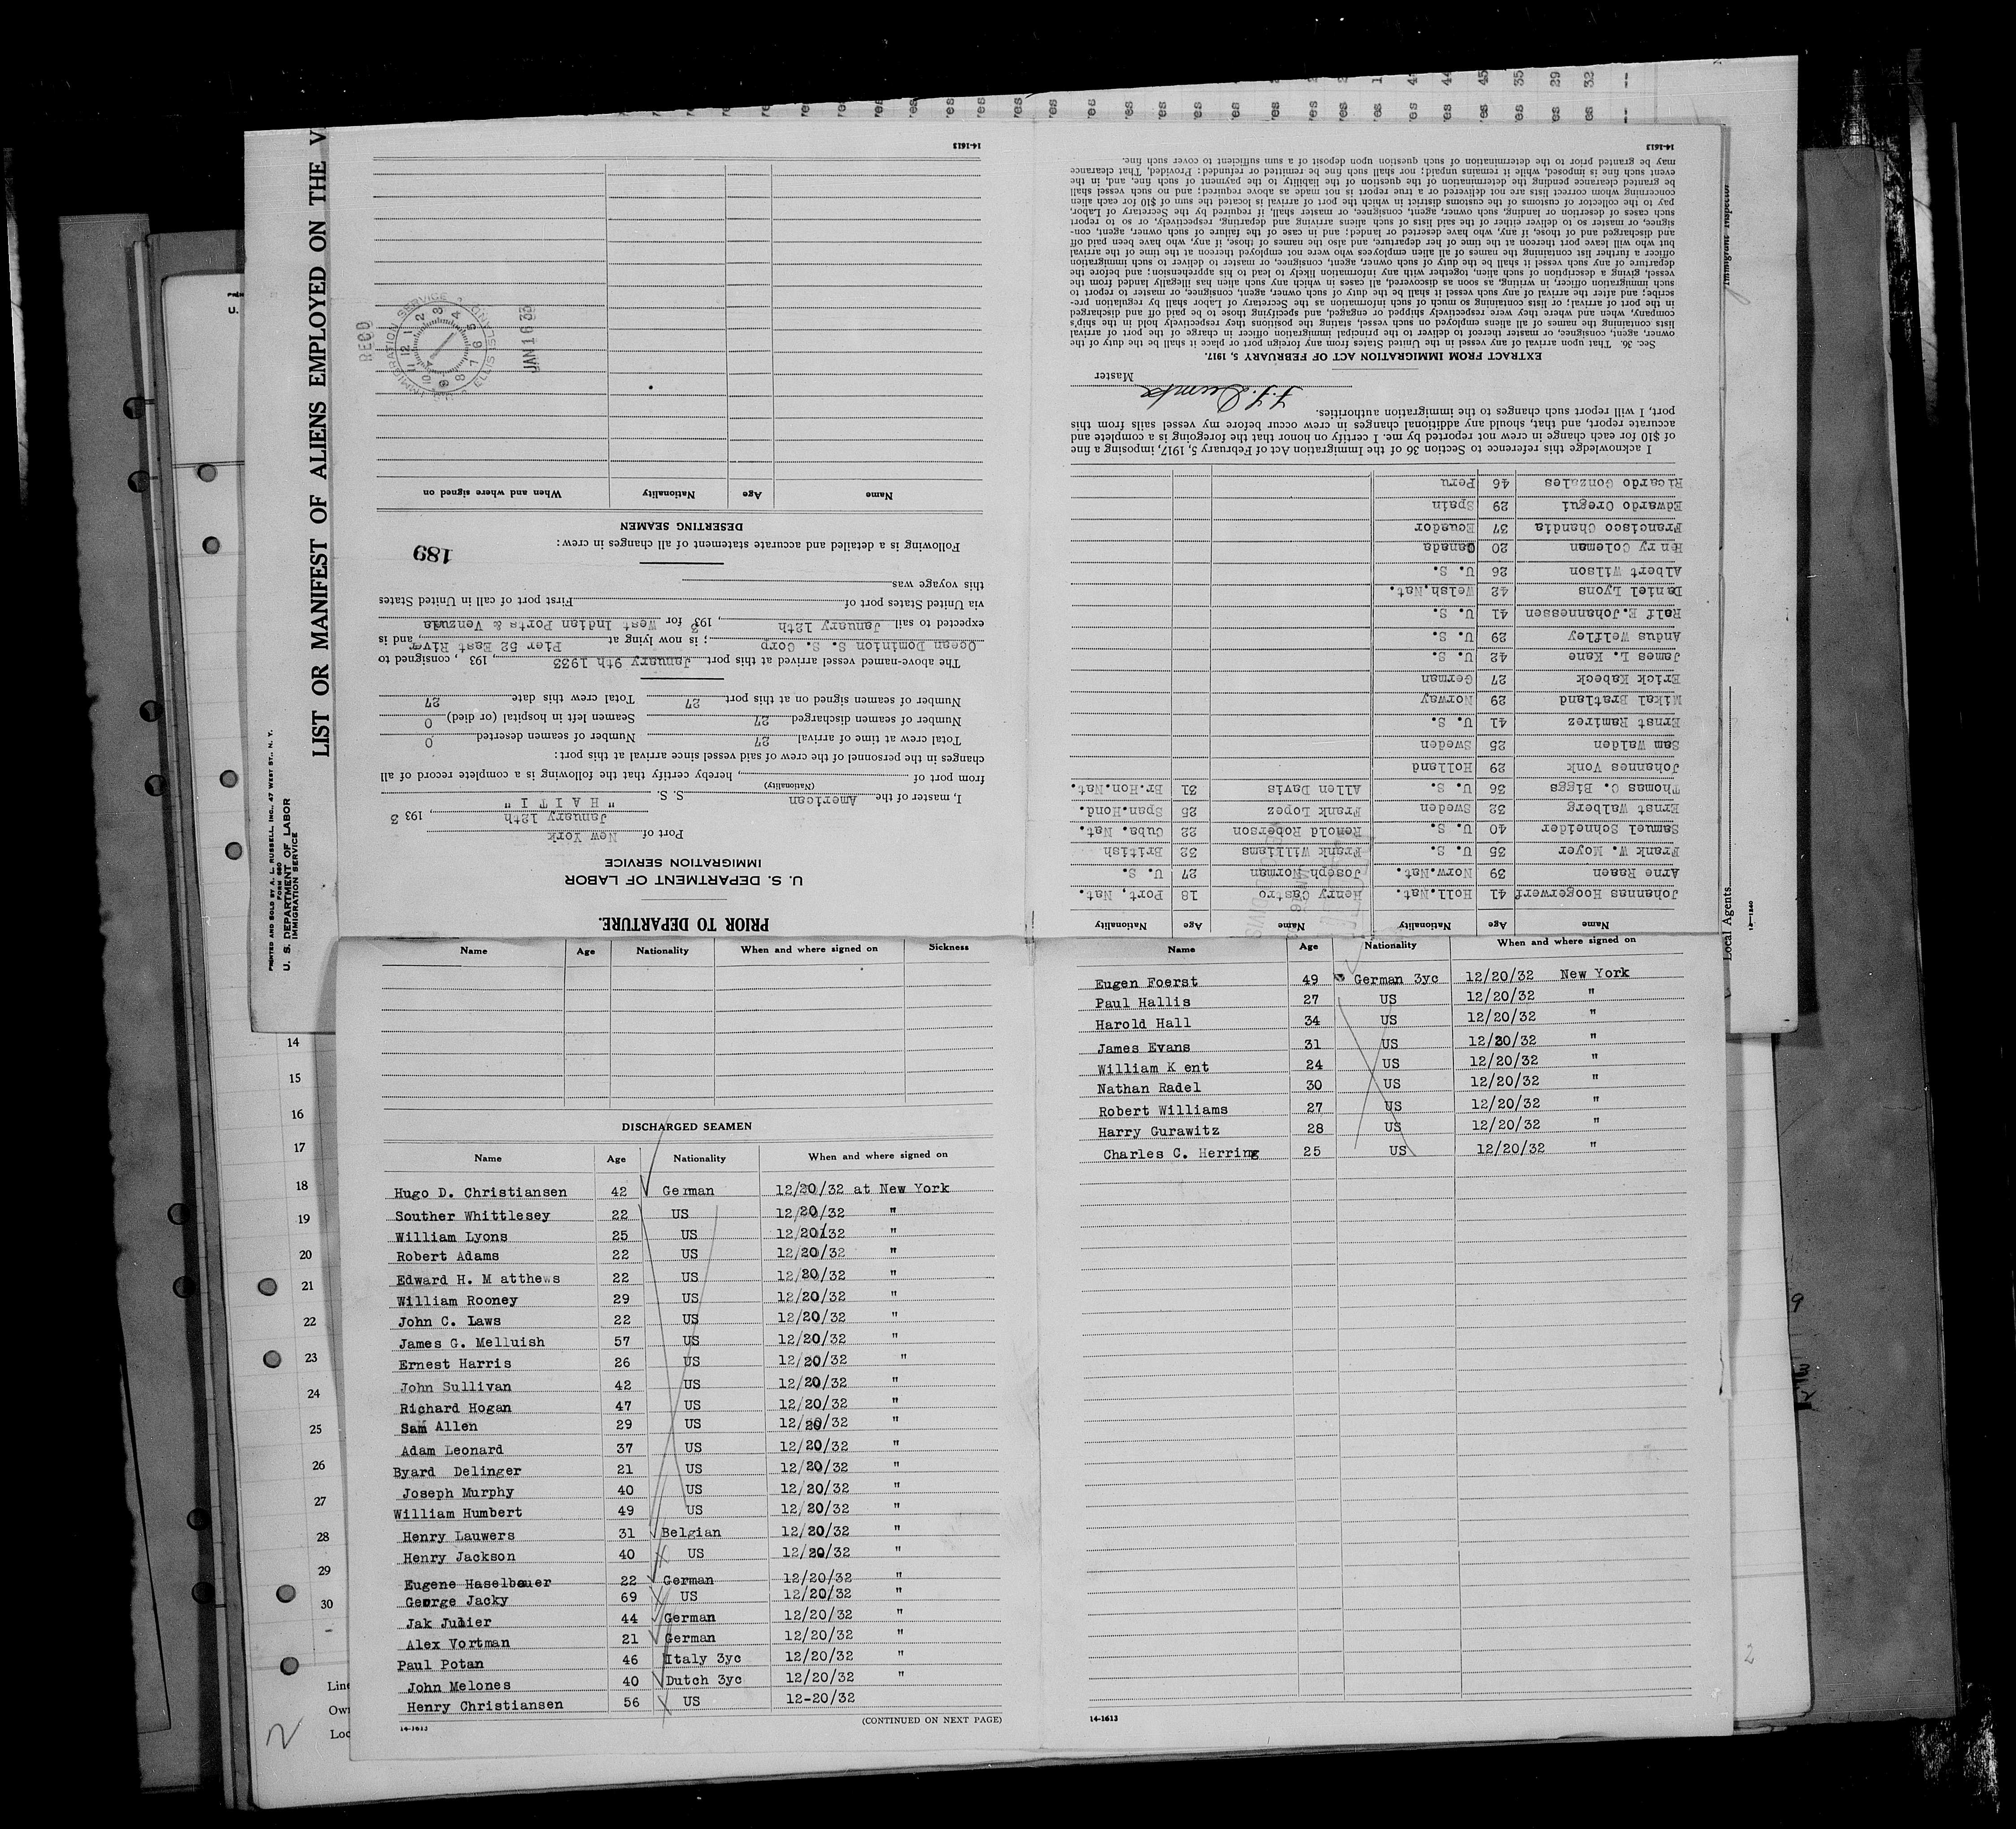 LIST OR MANIFEST OF ALIENS EMPLOYED ON THE V
PRINTED AND SOLD BY A. L. RUSSELL, INC., 47 WEST ST., N. Y.
FORM 680
U. S. DEPARTMENT OF LABOR
IMMIGRATION SERVICE
PRIOR TO DEPARTURE.
U. S. DEPARTMENT OF LABOR
IMMIGRATION SERVICE
Port of New York
January 12th, 193 3
I, master of the American S. S. "HAITI"
(Nationality)
from port of , hereby certify that the following is a complete record of all
changes in the personnel of the crew of said vessel since arrival at this port:
Total crew at time of arrival 27 Number of seamen deserted 0
Number of seamen discharged 27 Seamen left in hospital (or died) 0
Number of seamen signed on at this port 27 Total crew this date 27
The above-named vessel arrived at this port January 9th 1933, 193 , consigned to
Ocean Dominion S. S. Corp ; is now lying at Pier 52 East River, and is
expected to sail January 12th, 193 3 for West Indian Ports & Venzuda
via United States port of First port of call in United States
this voyage was
189
Following is a detailed and accurate statement of all changes in crew:
DESERTING SEAMEN
Name Age Nationality When and where signed on
REC'D
IMMIGRATION SERVICE
ELLIS ISLAND
JAN 16 33
14-1613
Name Age Nationality Name Age Nationality
Johannas Hoogerwerf 41 Holl.Nat. Henry Castro 18 Port, Nat.
Arne Raaen 39 Norw.Nat. Joseph Norman 27 U. S.
Frank W. Moyer 35 U. S. Frank Williams 32 British
Samuel Schneider 40 U. S. Renold Roberson 22 Cuba. Nat.
Ernst Walberg 32 Sweden Frank Lopez 25 Span.Hond.
Thomas C. Biggs 36 U. S. Allen Davis 31 Br.Hon.Nat.
Johannes Vonk 29 Holland
Sam Walden 25 Sweden
Ernst Ramirez 41 U. S.
Mikal Bratland 29 Norway
Erick Kabeck 27 German
James L. Kane 42 U. S.
Andus Welfley 29 U. S.
Ralf E.Johannessen 41 U. S.
Daniel Lyons 42 Welsh.Nat.
Albert Wilson 26 U. S.
Henry Coleman 20 Canada
Francisco Chandia 37 Ecuador
Edwardo Oregui 29 Spain
Ricardo Gonzales 46 Peru
I acknowledge this reference to Section 36 of the Immigration Act of February 5, 1917, imposing a fine
of $10 for each change in crew not reported by me. I certify on honor that the foregoing is a complete and
accurate report, and that, should any additional changes in crew occur before my vessel sails from this
port, I will report such changes to the immigration authorities.
Master
EXTRACT FROM IMMIGRATION ACT OF FEBRUARY 5, 1917.
Sec. 36. That upon arrival of any vessel in the United States from any foreign port or place it shall be the duty of the
owner, agent, consignee, or master thereof to deliver to the principal immigration officer in charge of the port of arrival
lists containing the names of all aliens employed on such vessel, stating the positions they respectively hold in the ship's
company, when and where they were respectively shipped or engaged, and specifying those to be paid off and discharged
in the port of arrival; or lists containing so much of such information as the Secretary of Labor shall by regulation pre-
scribe; and after the arrival of any such vessel it shall be the duty of such owner, agent, consignee, or master to report to
such immigration officer, in writing, as soon as discovered, all cases in which any such alien has illegally landed from the
vessel, giving a description of such alien, together with any information likely to lead to his apprehension; and before the
departure of any such vessel it shall be the duty of such owner, agent, consignee, or master to deliver to such immigration
officer a further list containing the names of all alien employees who were not employed thereon at the time of the arrival
but who will leave port thereon at the time of her departure, and also the names of those, if any, who have been paid off
and discharged and of those, if any, who have deserted or landed; and in case of the failure of such owner, agent, con-
signee, or master so to deliver either of the said lists of such aliens arriving and departing, respectively, or so to report
such cases of desertion or landing, such owner, agent, consignee, or master shall, if required by the Secretary of Labor,
pay to the collector of customs of the customs district in which the port of arrival is located the sum of $10 for each alien
concerning whom correct lists are not delivered or a true report is not made as above required; and no such vessel shall
be granted clearance pending the determination of the question of the liability to the payment of such fine, and, in the
event such fine is imposed, while it remains unpaid; nor shall such fine be remitted or refunded: Provided, That clearance
may be granted prior to the determination of such question upon deposit of a sum sufficient to cover such fine.
14-1613
Name Age Nationality When and where signed on Sickness
DISCHARGED SEAMEN
Name Age Nationality When and where signed on
Hugo D. Christiansen 42 German 12/20/32 at New York
Souther Whittlesey 22 US 12/20/32 "
William Lyons 25 US 12/20/32 "
Robert Adams 22 US 12/20/32 "
Edward H. M atthews 22 US 12/20/32 "
William Rooney 29 US 12/20/32 "
John C. Laws 22 US 12/20/32 "
James G. Melluish 57 US 12/20/32 "
Ernest Harris 26 US 12/20/32 "
John Sullivan 42 US 12/20/32 "
Richard Hogan 47 US 12/20/32 "
Sam Allen 29 US 12/20/32 "
Adam Leonard 37 US 12/20/32 "
Byard Delinger 21 US 12/20/32 "
Joseph Murphy 40 US 12/20/32 "
William Humbert 49 US 12/20/32 "
Henry Lauwers 31 Belgian 12/20/32 "
Henry Jackson 40 US 12/20/32 "
Eugene Haselbauer 22 German 12/20/32 "
George Jacky 69 US 12/20/32 "
Jak Julier 44 German 12/20/32 "
Alex Vortman 21 German 12/20/32 "
Paul Potan 46 Italy 3yc 12/20/32 "
John Melones 40 Dutch 3yc 12/20/32 "
Henry Christiansen 56 US 12-20/32
14-1613
(CONTINUED ON NEXT PAGE)
Name Age Nationality When and where signed on
Eugen Foerst 49 German 3yc 12/20/32 New York
Paul Hallis 27 US 12/20/32 "
Harold Hall 34 US 12/20/32 "
James Evans 31 US 12/20/32 "
William K ent 24 US 12/20/32 "
Nathan Radel 30 US 12/20/32 "
Robert Williams 27 US 12/20/32 "
Harry Gurawitz 28 US 12/20/32 "
Charles C. Herring 25 US 12/20/32 "
14-1613
14
15
16
17
18
19
20
21
22
23
24
25
26
27
28
29
30
Line
Own
Loc
2
Immigrant Inspector.
Local Agents
2